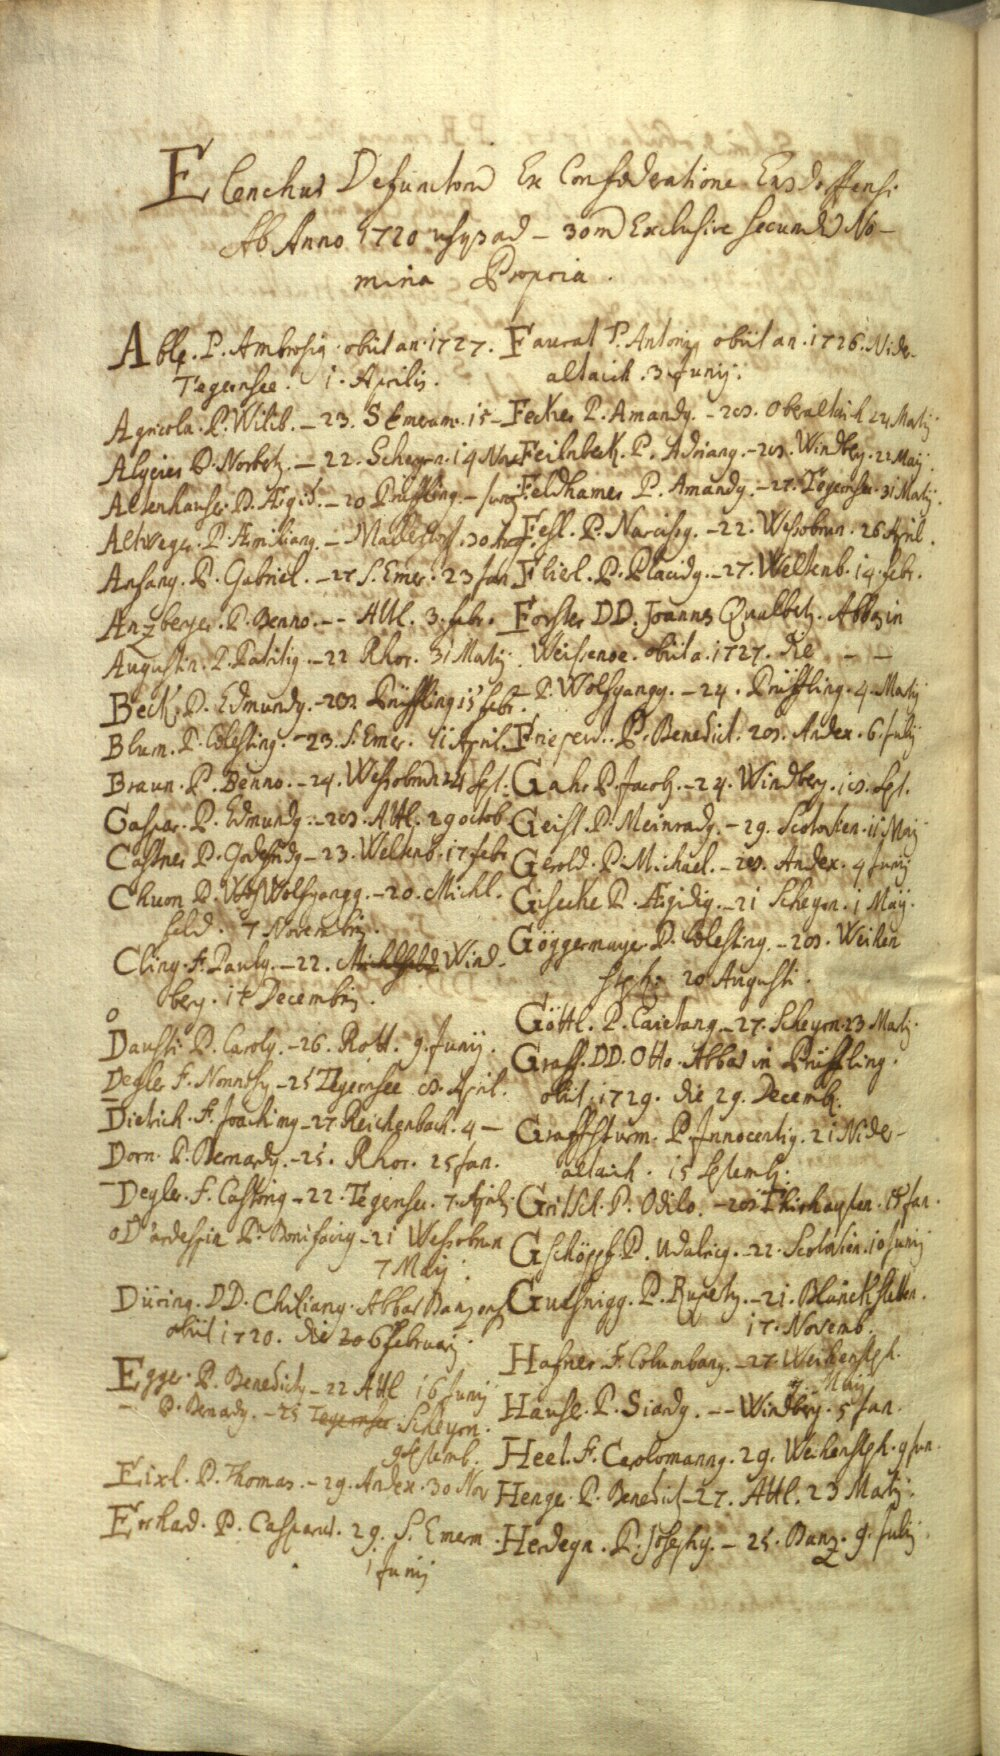 Elenchus Defunctorū Ex Confœderatione Ensdorffensi
Ab Anno 1720 usqȝ ad – 30m Exclusive secundū No-
mina Propria.
Able. P. Ambrosiq. obiit an. 1727.
Tegernsee. 1. Aprilis.
Agricola. P. Wilib. – 23. S Emeram. 15 –
Algeier P. Norbertq. – 22. Scheyrn. 14 Nov
Altenhauser. P. Ægid. – 20 Prüffling. – Junij
Altweger. P. Æmilianq. – Mallerstorf. 30 Aug.
Anfang. P. Gabriel. – 27 S. Emer. 23 Jan
Anzberger. P. Benno. – – Attl. 3. febr.
Augustin. P. Patritiq. – 22 Rhor. 31 Martij.
Beck. P. Edmundq. – 28. Prüffling 15 febr.
Blum. P. Cœlestinq. – 23. S. Emer. 11 April.
Braun. P. Benno. – 24. Wessobrun 24 Sept.
Caspar. P. Edmundq. – 28. Attl. 29 octob.
Castner P. Godefridq – 23. Weltenb. 17 febr
Chuon P. Wolfgangq. – 20. Michl.
feld. 7 Novembris.
Cling. F. Paulq. – 22. Michlfeld Wind-
berg. 18 Decembris.
Dausti P. Carolq. – 26. Rott. 9. Junij.
Degler F. Nonnosq – 25 Tegernsee 8. April.
Dietrich. F. Joachimq – 27 Reichenbach. 4 –
Dorn. P. Bernardq. – 25. Rhor. 25 Jan.
Degler. F. Castorinq – 22. Tegernsee. 7. Aprilis.
D'ardespin P. Bonifaciq – 21 Wessobrun
7 Maij.
Düring. DD. Chilianq. Abbas Banzens
obiit 1720. die 206 februarij.
Egger. P. Benedictq – 22 Attl 16 Junij
P. Bernardq. – 25 Tegernsee Scheyrn.
9 Septemb.
Eixl. P. Thomas. – 29. Andex. 30 Nov
Erhard. P. Casparus. 29. S. Emerm.
1 Junij
Faurat P. Antoniq obiit an. 1726. Nider-
altaich. 3. Junij.
Fecker P. Amandq. – 28. Oberaltaich 24 Martij.
Feilnbeck. P. Adrianq. – 28. Windberg. 22 Maij.
Feldhamer P. Amandq. – 27. Tegernsee. 31 Martij.
Fesl. P. Narcissq. – 22. Wessobrun. 26 April.
Flierl. P. Placidq. – 27. Weltenb. 14. febr.
Forster DD. Joannes Abbas in
Weissenoe. obiit a. 1727. die – –
– P. Wolfgangq. – 24. Prüffling. 4. Martij
P. Benedict. 28. Andex. 6. Julij
Gahr P. Jacobq. – 24. Windberg. 18. Sept.
Geist. P. Meinradq. – 29. Scotorsien. 11 Maij
Gerold. P. Michael. – 28. Andex. 4 Junij
Gisecke P. Ægidiq. – 21 Scheyrn. 1 Maij.
Göggermayer P. Cœlestinq. – 28. Weihen
steph. 20 Augusti.
Göttl. P. Caietanq. – 27. Scheyrn. 23 Martij.
Graff. DD. Otto. Abbas in Prüffling.
obiit. 1729. die 29. Decembq.
Graffsturm. P. Innocentiq. 21 Nider-
altaich. 15 Septembq.
Gritsch. P. Odilo. – 28 Thirhapten. 18 Jan.
Gschöpf. P. Udalricq. – 22. Scotorsien. 10 Junij
Guesnigg. P. Rupertq. – 21. Blanckstetten.
17. Novemb.
Hafner. F. Columbanq. – 27. Weihensteph.
7. Maij
Häusl. P. Siardq. – – Windberg. 5 Jan.
Heel. F. Carolomannq. 29. Weihensteph. 9 Jun.
Henger P. Benedict – 27. Attl. 23 Martij.
Herdegn. P. Josephq. – 25. Banz. 9. Julij